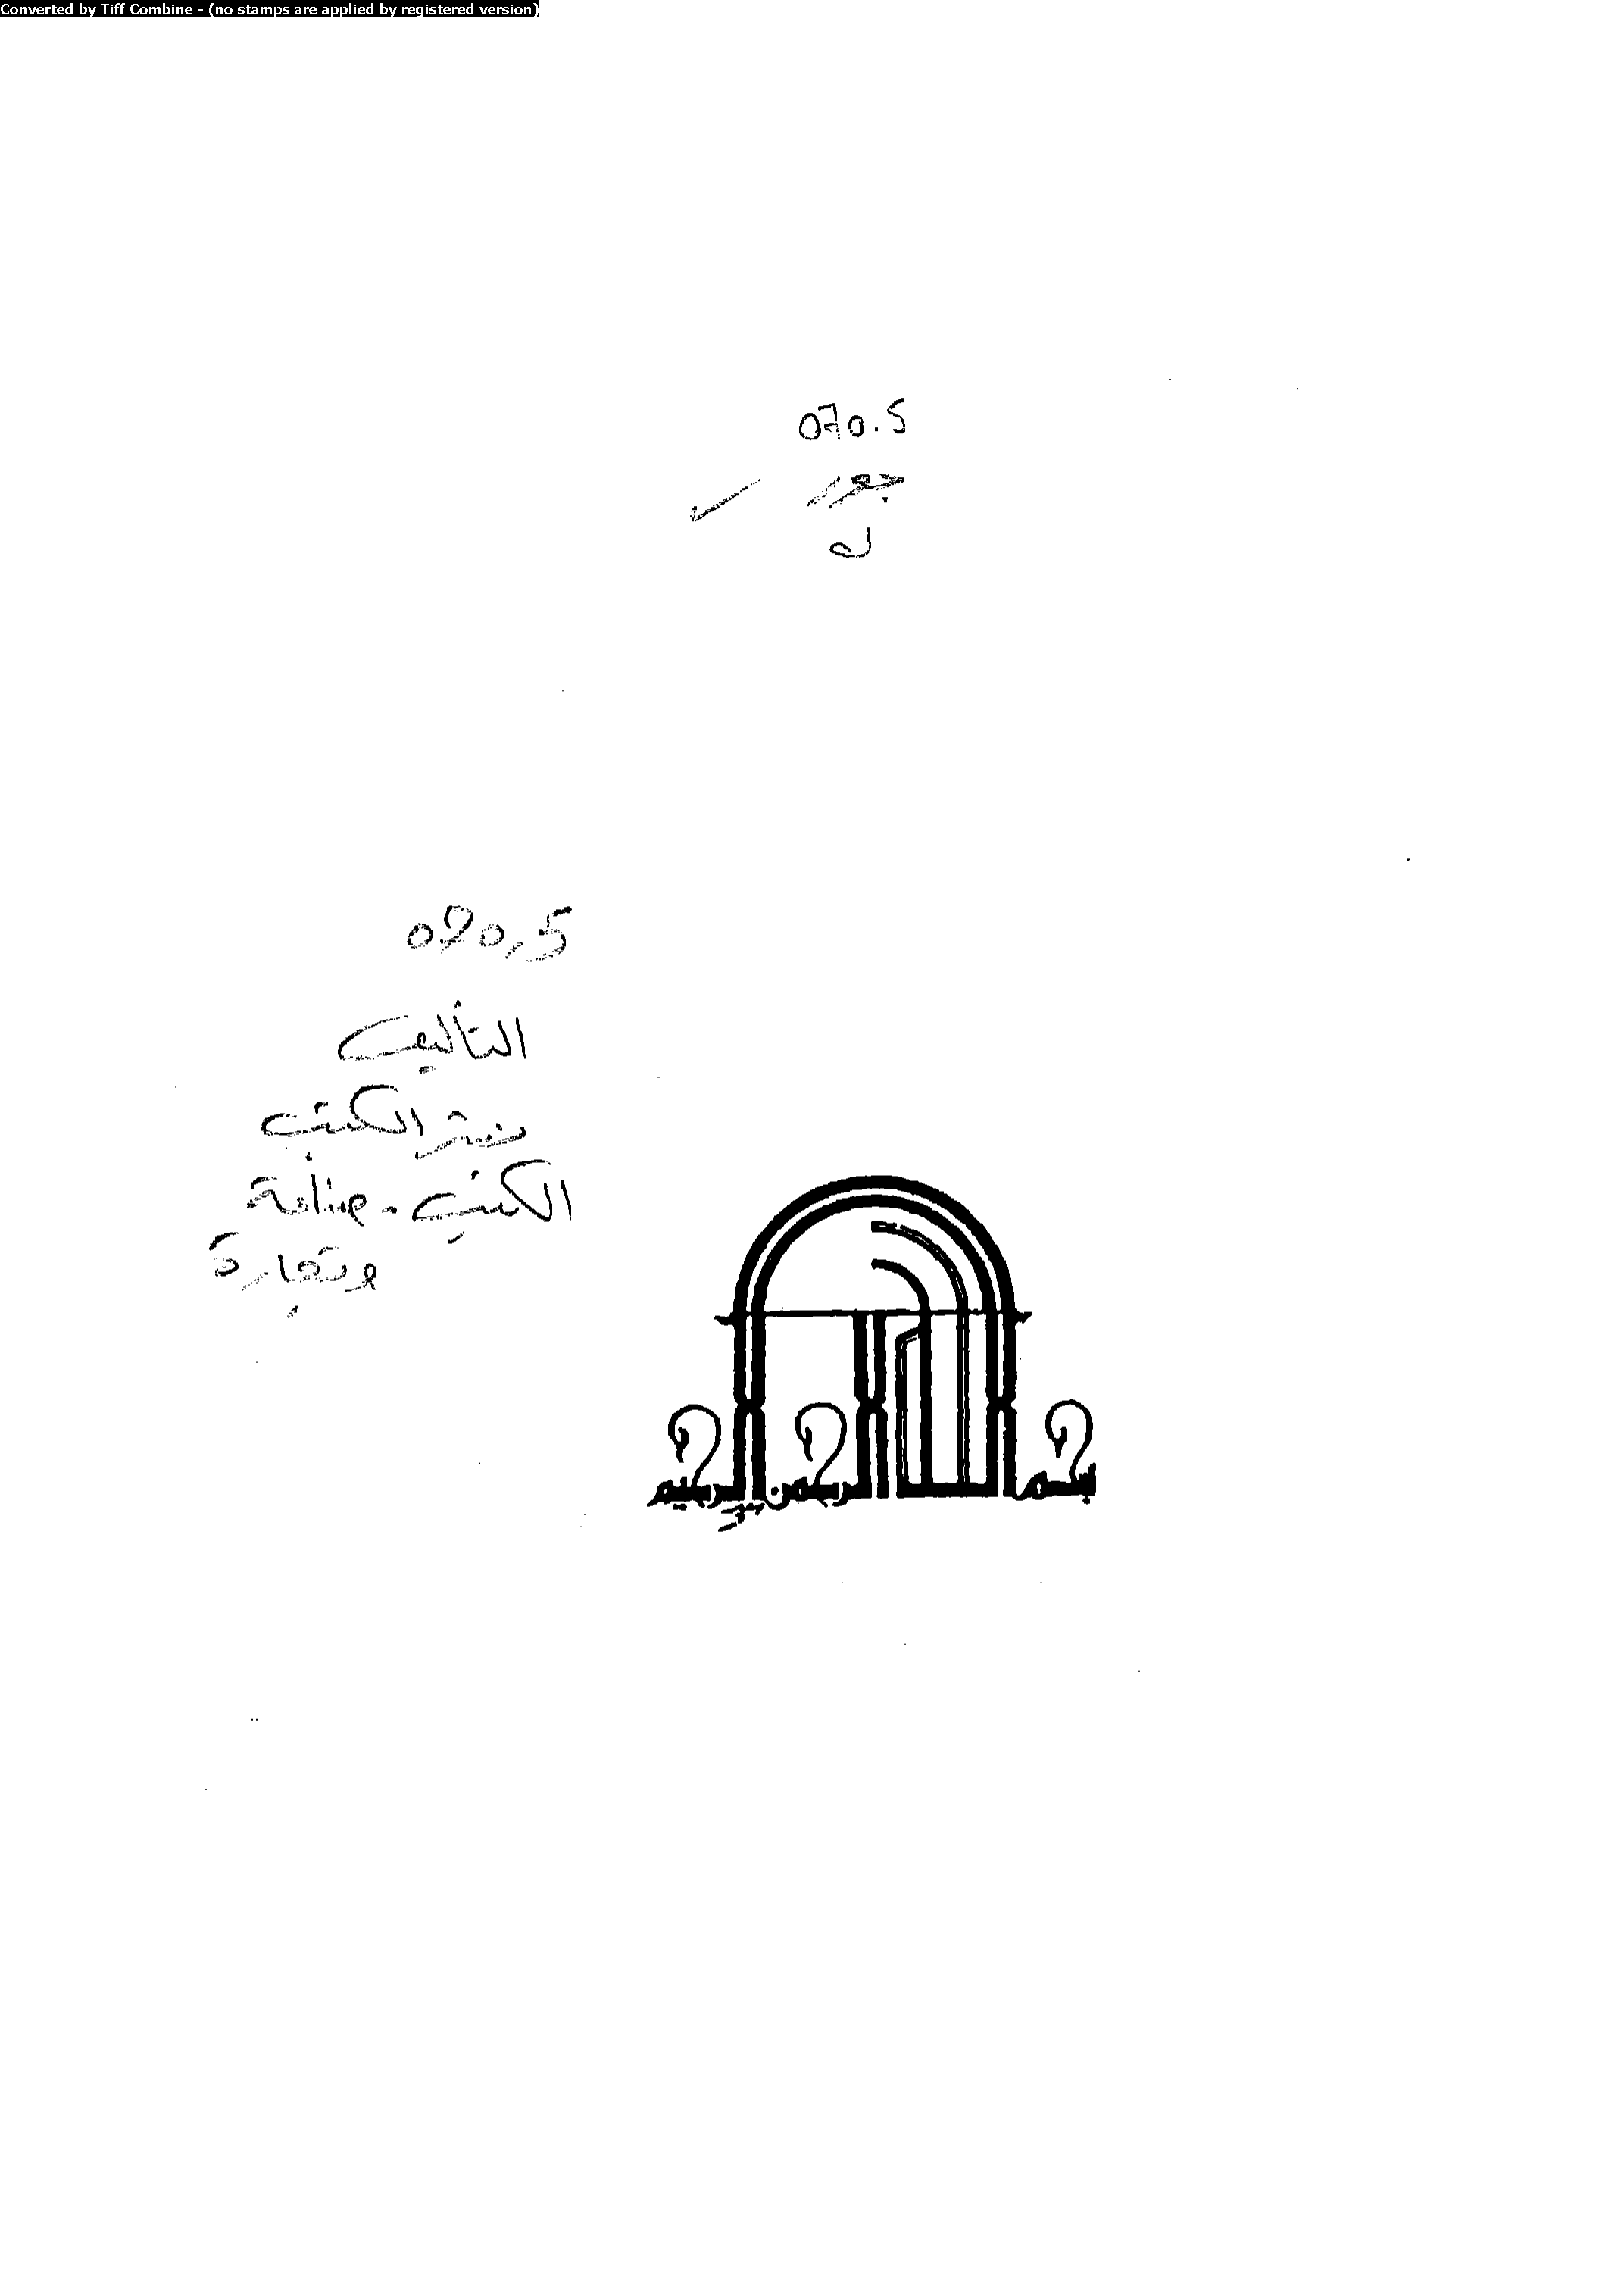 Converted by Tiff Combine - (no stamps are applied by registered version)
070.5
جور
ل
070,5
التأليف
نشر الكتب
الكتب - صناعة
وتجارة
بسم الله الرحمن الرحيم